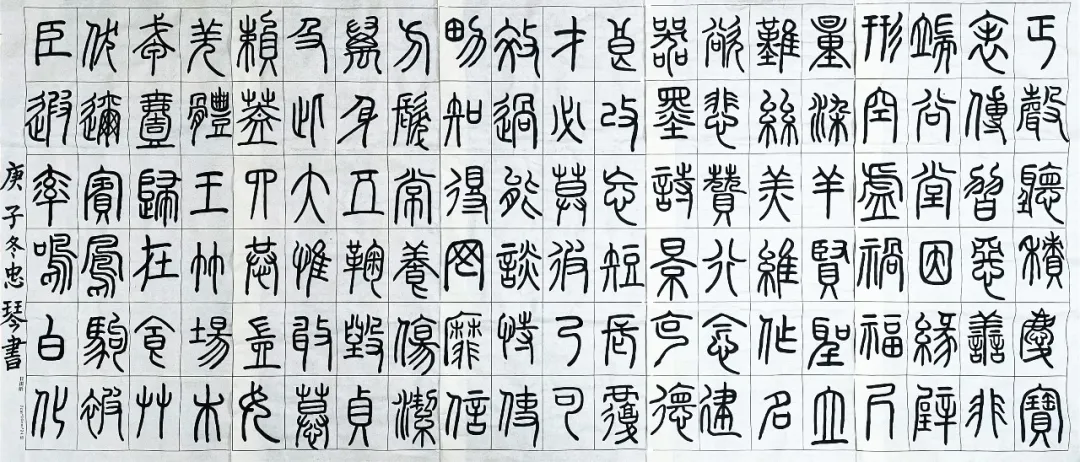 臣伏戎羌
遐邇壹體
率賓歸王
鳴鳳在竹
白駒食場
化被草木
賴及萬方
蓋此身髮
四大五常
恭惟鞠養
豈敢毀傷
女慕貞潔
男效才良
知過必改
得能莫忘
罔談彼短
靡恃己長
信使可覆
器欲難量
墨悲絲染
詩贊羔羊
景行維賢
克念作聖
德建名立
形端表正
空谷傳聲
虛堂習聽
禍因惡積
福緣善慶
尺璧非寶
庚子冬忠琴書